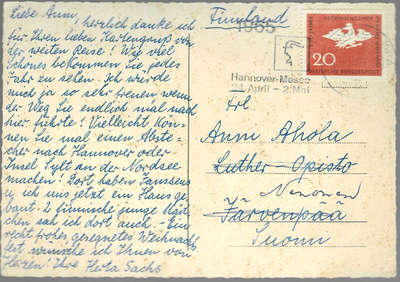 Liebe Anna,
herzlich danke ich
für Ihren lieben Kartengruß von
der weiten Reise! Wie viel
Schönes bekommen Sie jedes
Jahr zu sehen. Ich würde
mich ja so sehr freuen wenn
der Weg Sie endlich mal nach
hier führte! Vielleicht kön-
nen Sie mal einen Abste-
cher nach Hannover oder
Insel Sylt an der Nordsee
machen. Dort haben Janssens
u. ich uns jetzt ein Haus ge-
baut. 2 finnische junge Mäd-
chen sah ich dort auch. - Ein
recht frohes gesegnetes Weihnachts-
fest wünsche ich Ihnen von
Herzen. Ihre Herta Sachs
Finnland
1965
Hannover-Messe
24. April - 2. Mai
20
DEUTSCHE BUNDESPOST
Frl.
Anna Ahola
Luther-Opisto
Järvenpää
Suomi